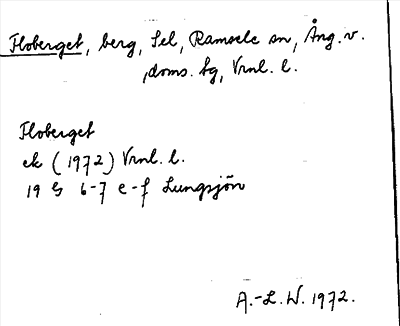 Floberget, berg, Sel, Ramsele sn, Ång. v.
,doms. tg, Vrnl. l.
Floberget
ek (1972) Vrnl. l.
19 G 6-7 e-f Lungsjön
A.-L. W. 1972.